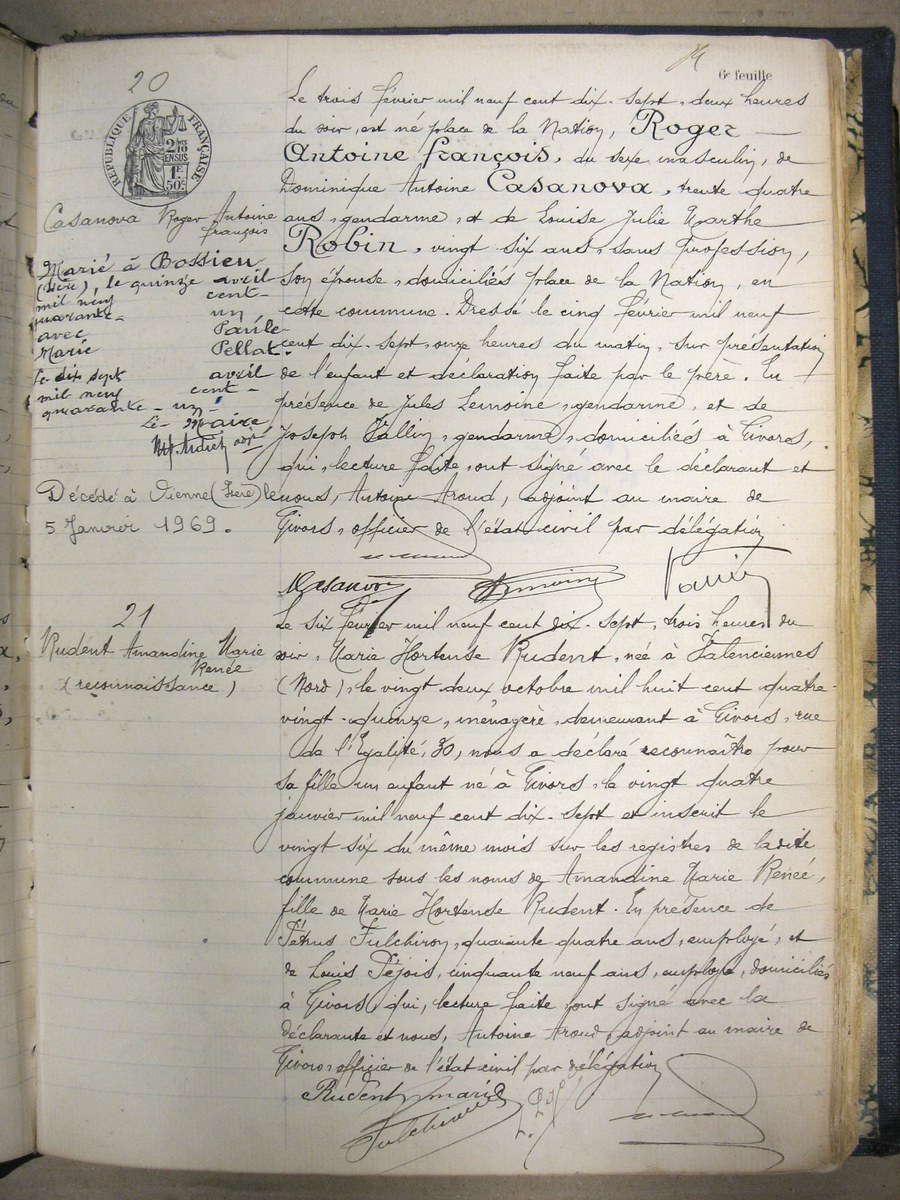 6e feuille
20
RÉPUBLIQUE FRANÇAISE
2/10 EN SUS
1F 50c
Casanova Roger Antoine
françois
Marié à Bossieu
(Isère), le quinze avril
mil neuf cent-
quarante- un
avec Paule
Marie Pellat.
Le dix sept avril
mil neuf cent-
quarante-un
Le Maire
Décédé à Vienne (Isère) le
5 Janvier 1969.
Le trois février mil neuf cent dix-sept, deux heures
du soir, est né place de la Nation, Roger
Antoine françois, du sexe masculin, de
Dominique Antoine Casanova, trente quatre
ans, gendarme, et de Louise Julie Marthe
Robin, vingt six ans, sans profession,
son épouse, domiciliés place de la Nation, en
cette commune. Dressé le cinq février mil neuf
cent dix-sept, onze heures du matin, sur présentation
de l'enfant et déclaration faite par le père. En
présence de Jules Lemoine, gendarme, et de
Joseph Vallin, gendarme, domiciliés à Givors,
qui, lecture faite, ont signé avec le déclarant et
nous, Antoine Aroud, adjoint au maire de
Givors, officier de l'état civil par délégation
Casanova
21
Rudent Amandine Marie
Renée
(reconnaissance)
Le six février mil neuf cent dix-sept, trois heures du
soir, Marie Hortense Rudent, née à Valenciennes
(Nord), le vingt deux octobre mil huit cent quatre-
vingt-quinze, ménagère, demeurant à Givors, rue
de l'Egalité, 30, nous a déclaré reconnaître pour
sa fille un enfant né à Givors, le vingt quatre
janvier mil neuf cent dix-sept et inscrit le
vingt six du même mois sur les registres de ladite
commune sous les noms de Amandine Marie Renée,
fille de Marie Hortense Rudent. En présence de
Pétrus Fulchiron, quarante quatre ans, employé, et
de Louis Péjois, cinquante neuf ans, employé, domiciliés
à Givors, qui, lecture faite, ont signé avec la
déclarante et nous, Antoine Aroud, adjoint au maire de
Givors, officier de l'état civil par délégation
Rudent marie
Fulchiron